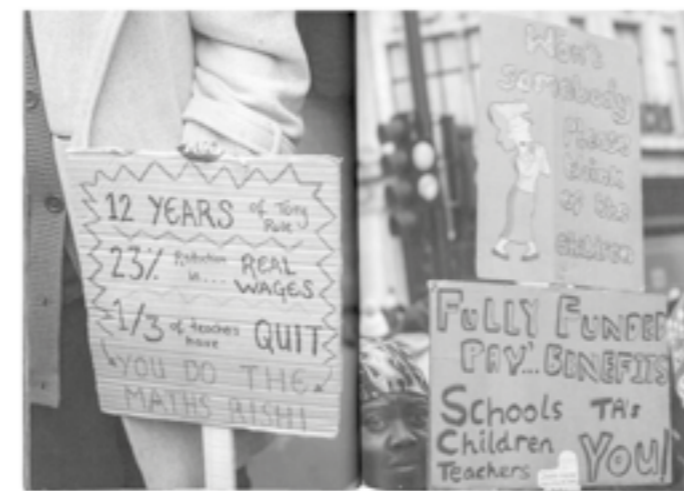 12 YEARS of Tory Rule
23% Reduction in... REAL WAGES
1/3 of teachers have QUIT
YOU DO THE
MATHS RISHI
Won't
somebody
Please
think
of the
children
FULLY FUNDED
PAY... BENEFITS
Schools TA's
Children
Teachers YOU!